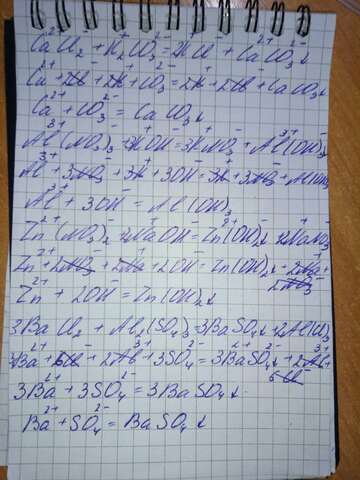 Ca²⁺Cl₂⁻ + H₂⁺CO₃²⁻ = 2H⁺Cl⁻ + Ca²⁺CO₃²⁻↓
Ca²⁺ + 2Cl⁻ + 2H⁺ + CO₃²⁻ = 2H⁺ + 2Cl⁻ + CaCO₃↓
Ca²⁺ + CO₃²⁻ = CaCO₃↓
Al³⁺(NO₃)₃⁻ + 3K⁺OH⁻ = 3K⁺NO₃⁻ + Al³⁺(OH)₃⁻
Al³⁺ + 3NO₃⁻ + 3K⁺ + 3OH⁻ = 3K⁺ + 3NO₃⁻ + Al(OH)₃
Al³⁺ + 3OH⁻ = Al(OH)₃
Zn²⁺(NO₃)₂⁻ + 2Na⁺OH⁻ = Zn²⁺(OH)₂⁻↓ + 2Na⁺NO₃⁻
Zn²⁺ + 2NO₃⁻ + 2Na⁺ + 2OH⁻ = Zn(OH)₂↓ + 2Na⁺ +
2NO₃⁻
Zn²⁺ + 2OH⁻ = Zn(OH)₂↓
3BaCl₂ + Al₂(SO₄)₃ = 3BaSO₄↓ + 2AlCl₃
3Ba²⁺ + 6Cl⁻ + 2Al³⁺ + 3SO₄²⁻ = 3Ba²⁺SO₄²⁻↓ + 2Al³⁺ +
6Cl⁻
3Ba²⁺ + 3SO₄²⁻ = 3BaSO₄↓
Ba²⁺ + SO₄²⁻ = BaSO₄↓